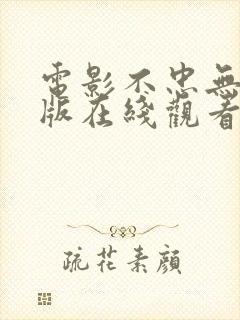 電影不忠無
版在綫觀看
疏花素顔